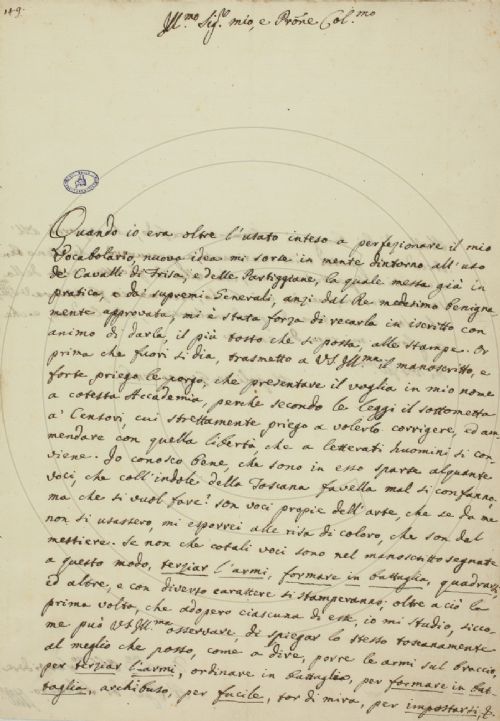 149.
Ill.mo Sig.r mio, e Prõne Col.mo
Quando io era oltre l'usato inteso a perfezionare il mio
Vocabolario, nuova idea mi sorse in mente dintorno all'uso
de' Cavalli di Frisa, e delle Partiggiane, la quale messa già in
pratica, e da i supremi Generali, anzi dal Re medesimo benigna
mente approvata, mi è stata forza di recarla in iscritto con
animo di darla, il più tosto che si possa, alle stampe. Or
prima che fuori si dia, trasmetto a VS. Ill.ma il manoscritto, e
forte priego le porgo, che presentare il voglia in mio nome
a cotesta Accademia, perchè secondo le leggi il sottometta
a' Censori, cui strettamente priego a volerlo corrigere, ed am
mendare con quella libertà, che a letterati huomini si con
viene. Io conosco bene, che sono in esso sparte alquante
voci, che coll'indole della Toscana favella mal si confanno,
ma che si vuol fare? son voci propie dell'arte, che se da me
non si usassero, mi esporrei alle risa di coloro, che son del
mestiere. Se non che cotali voci sono nel manoscritto segnate
a questo modo, terziar l'armi, formare in battaglia, quadrarsi,
ed altre, e con diverso carattere si stamperanno; oltre a ciò la
prima volta, che adopero ciascuna di esse, io mi studio, sicco
me può VS. Ill.ma osservare, di spiegar lo stesso toscanamente
al meglio che posso, come a dire, porre le armi sul braccio,
per terziar l'armi, ordinare in battaglia, per formare in bat
taglia, archibuso, per fucile, tor di mira, per impostarsi, &.